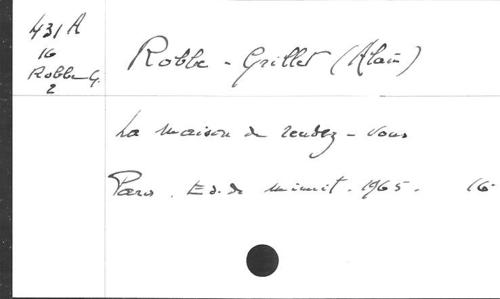 431 A
16
Robbe-G.
2
Robbe-Grillet (Alain)
La maison de rendez-vous
Paris. Ed. de minuit. 1965. 16-